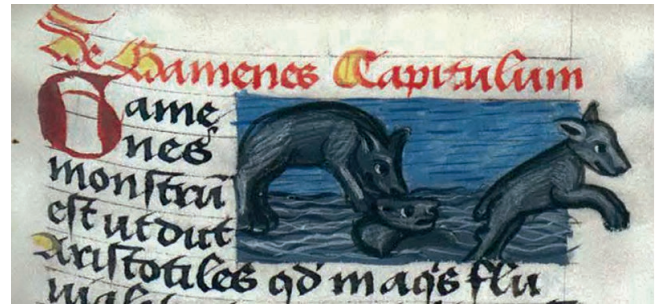 De Hamenes Capitulum
Hame
nes
monstrū
est ut dicit
Aristotiles qd̄ in aq̄s flu